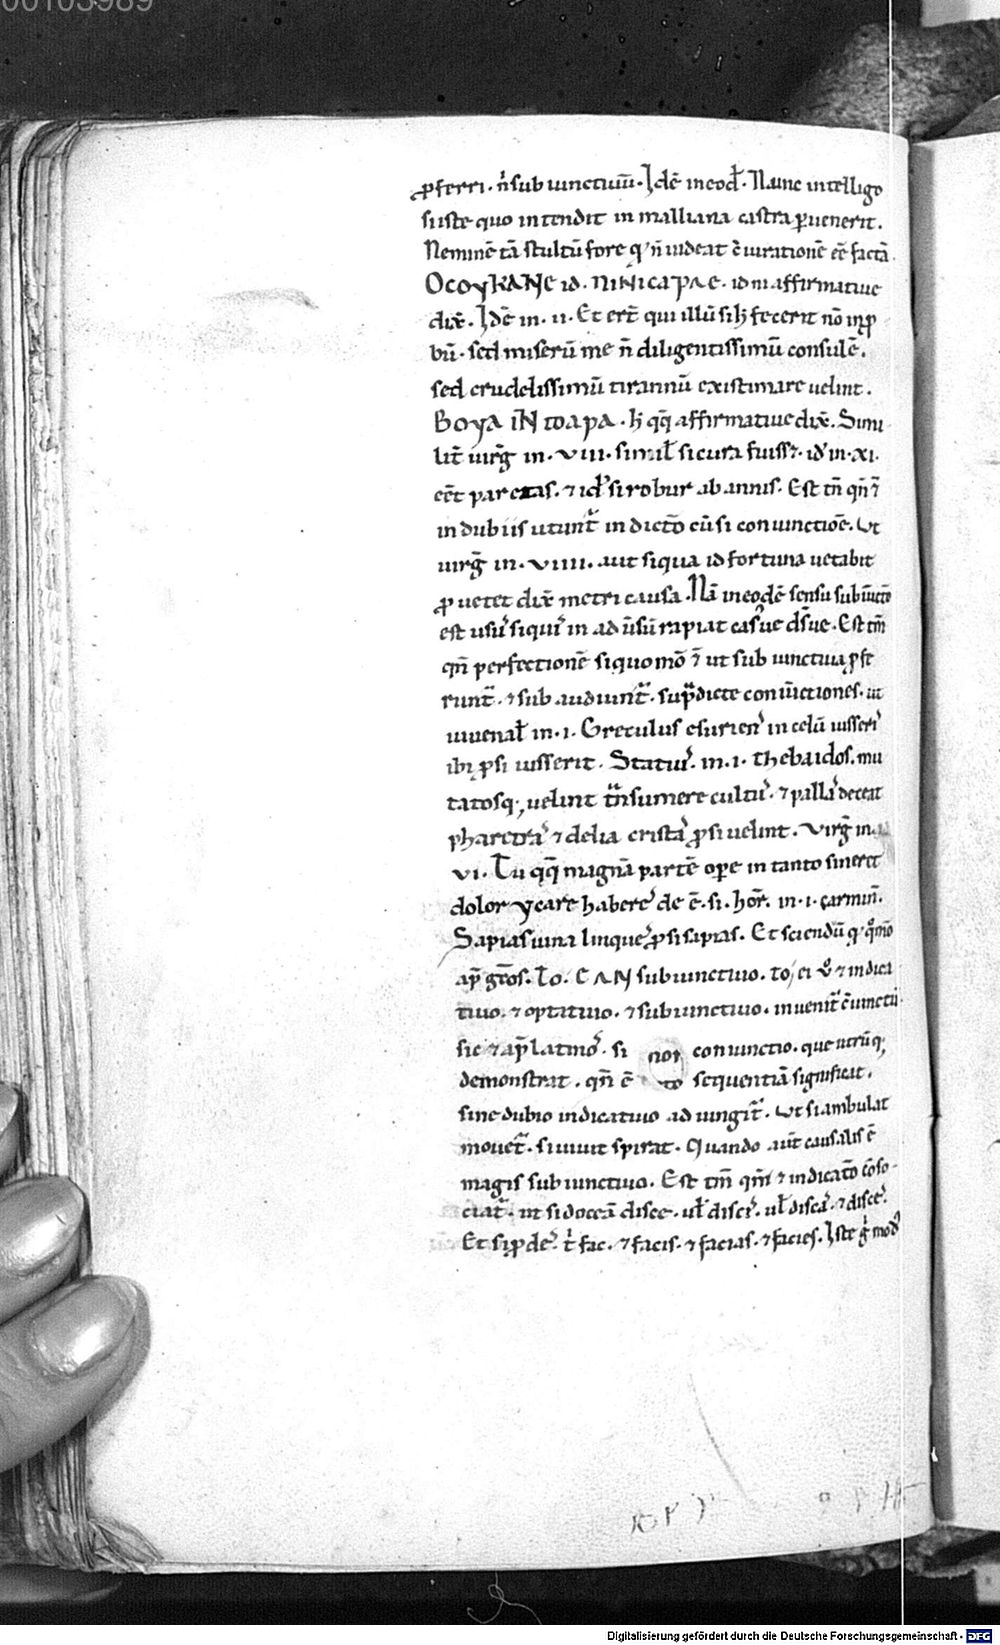 00103989
ꝓferri. n̄ subiunctiuū. Idē in eod̄. Nunc intelligo
si iste quo intendit in malliana castra ꝑuenerit.
Neminē tā stultū fore q n̄ uideat c̄iurationē eē factā.
OCOYKANE id. NINICAPAE. id ni affirmatiue
dix̄. Idē in. ii. Et ert̄ qui illū si h fecerit nō inꝓ
bū. sed miserū me n̄ diligentissimū consulē.
sed crudelissimū tirannū existimare uelint.
BOYAINTOAPA. h qq̄ affirmatiue dix̄. Simi
lit̄ uirḡ in. viii. simil̄ si cura fuiss&. id in. xi.
eēt par etas. ⁊ id si robur ab annis. Est tn̄ qn̄ ī
in dubiis utunt̄ in dicto cū si coniunctiōe. Ut
uirḡ in. viiii. aut siqua id fortuna uetabit
ꝓ uetet dix̄ metri causa. Nā in eodē sensu subiūcto
est usus siquis in aduersū rapiat casusue ds̄ue. Est tn̄
qn̄ perfectionē siquomō ī ut subiunctiua ꝓfe
runt̄. ⁊ subaudiunt̄. sup̄dicte coniūctiones. ut
iuuenal̄ in. i. Greculus esuriens in celū iusseris
ibit ꝓ si iusserit. Statius. in. i. thebaidos. mu
tatosq; uelint tn̄sumere cultus. ⁊ pallas deceat
pharetras ⁊ delia cristas ꝓ si uelint. Virḡ in.
vi. Tu qq̄ magnā partē oꝑe in tanto sineret
dolor ycare haberes de ē. si. hor̄. in. i. carmin̄.
Sapias uina liques ꝓ si sapias. Et sciendū q qomō
ap̄ grecos. To. EAN subiunctiuo. to ei ⁊ indica
tiuo. ⁊ optatiuo. ⁊ subiunctiuo. inuenit̄ c̄iunctū
sic ⁊ ap̄ latinos. si coniunctio. que utrūq;
demonstrat. qn̄ ē sequentiā significat.
sine dubio indicatiuo adiungit̄. Ut si ambulat
mouet̄. si uiuit spirat. Quando aūt causalis ē
magis subiunctiuo. Est tn̄ qn̄ ⁊ indicato cōso
ciat̄. ut si doceā disce. ul̄ discis. ul̄ discas. ⁊ disces.
Et si ꝓdes. t fac. ⁊ facis. ⁊ facias. ⁊ facies. Iste g mods
Digitalisierung gefördert durch die Deutsche Forschungsgemeinschaft - DFG